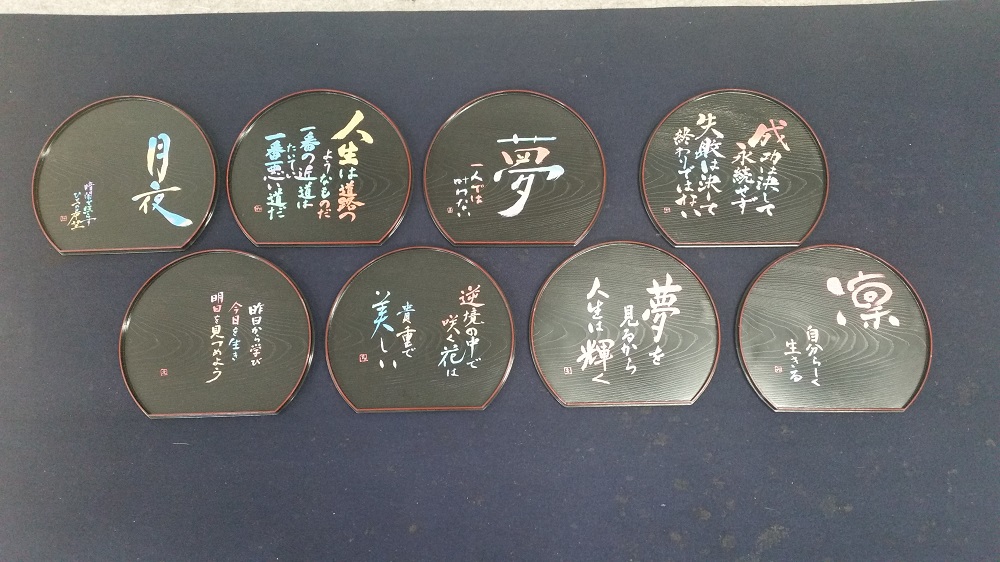 月夜
人生は道路の
ようなものだ
一番の近道は
たいてい
一番悪い道だ
夢
一人では
叶わない
成功は決して
永続せず
失敗は決して
終わりではない
昨日から学び
今日を生き
明日を見つめよう
逆境の中で
咲く花は
貴重で
美しい
夢を
見るから
人生は輝く
凛
自分らしく
生きる